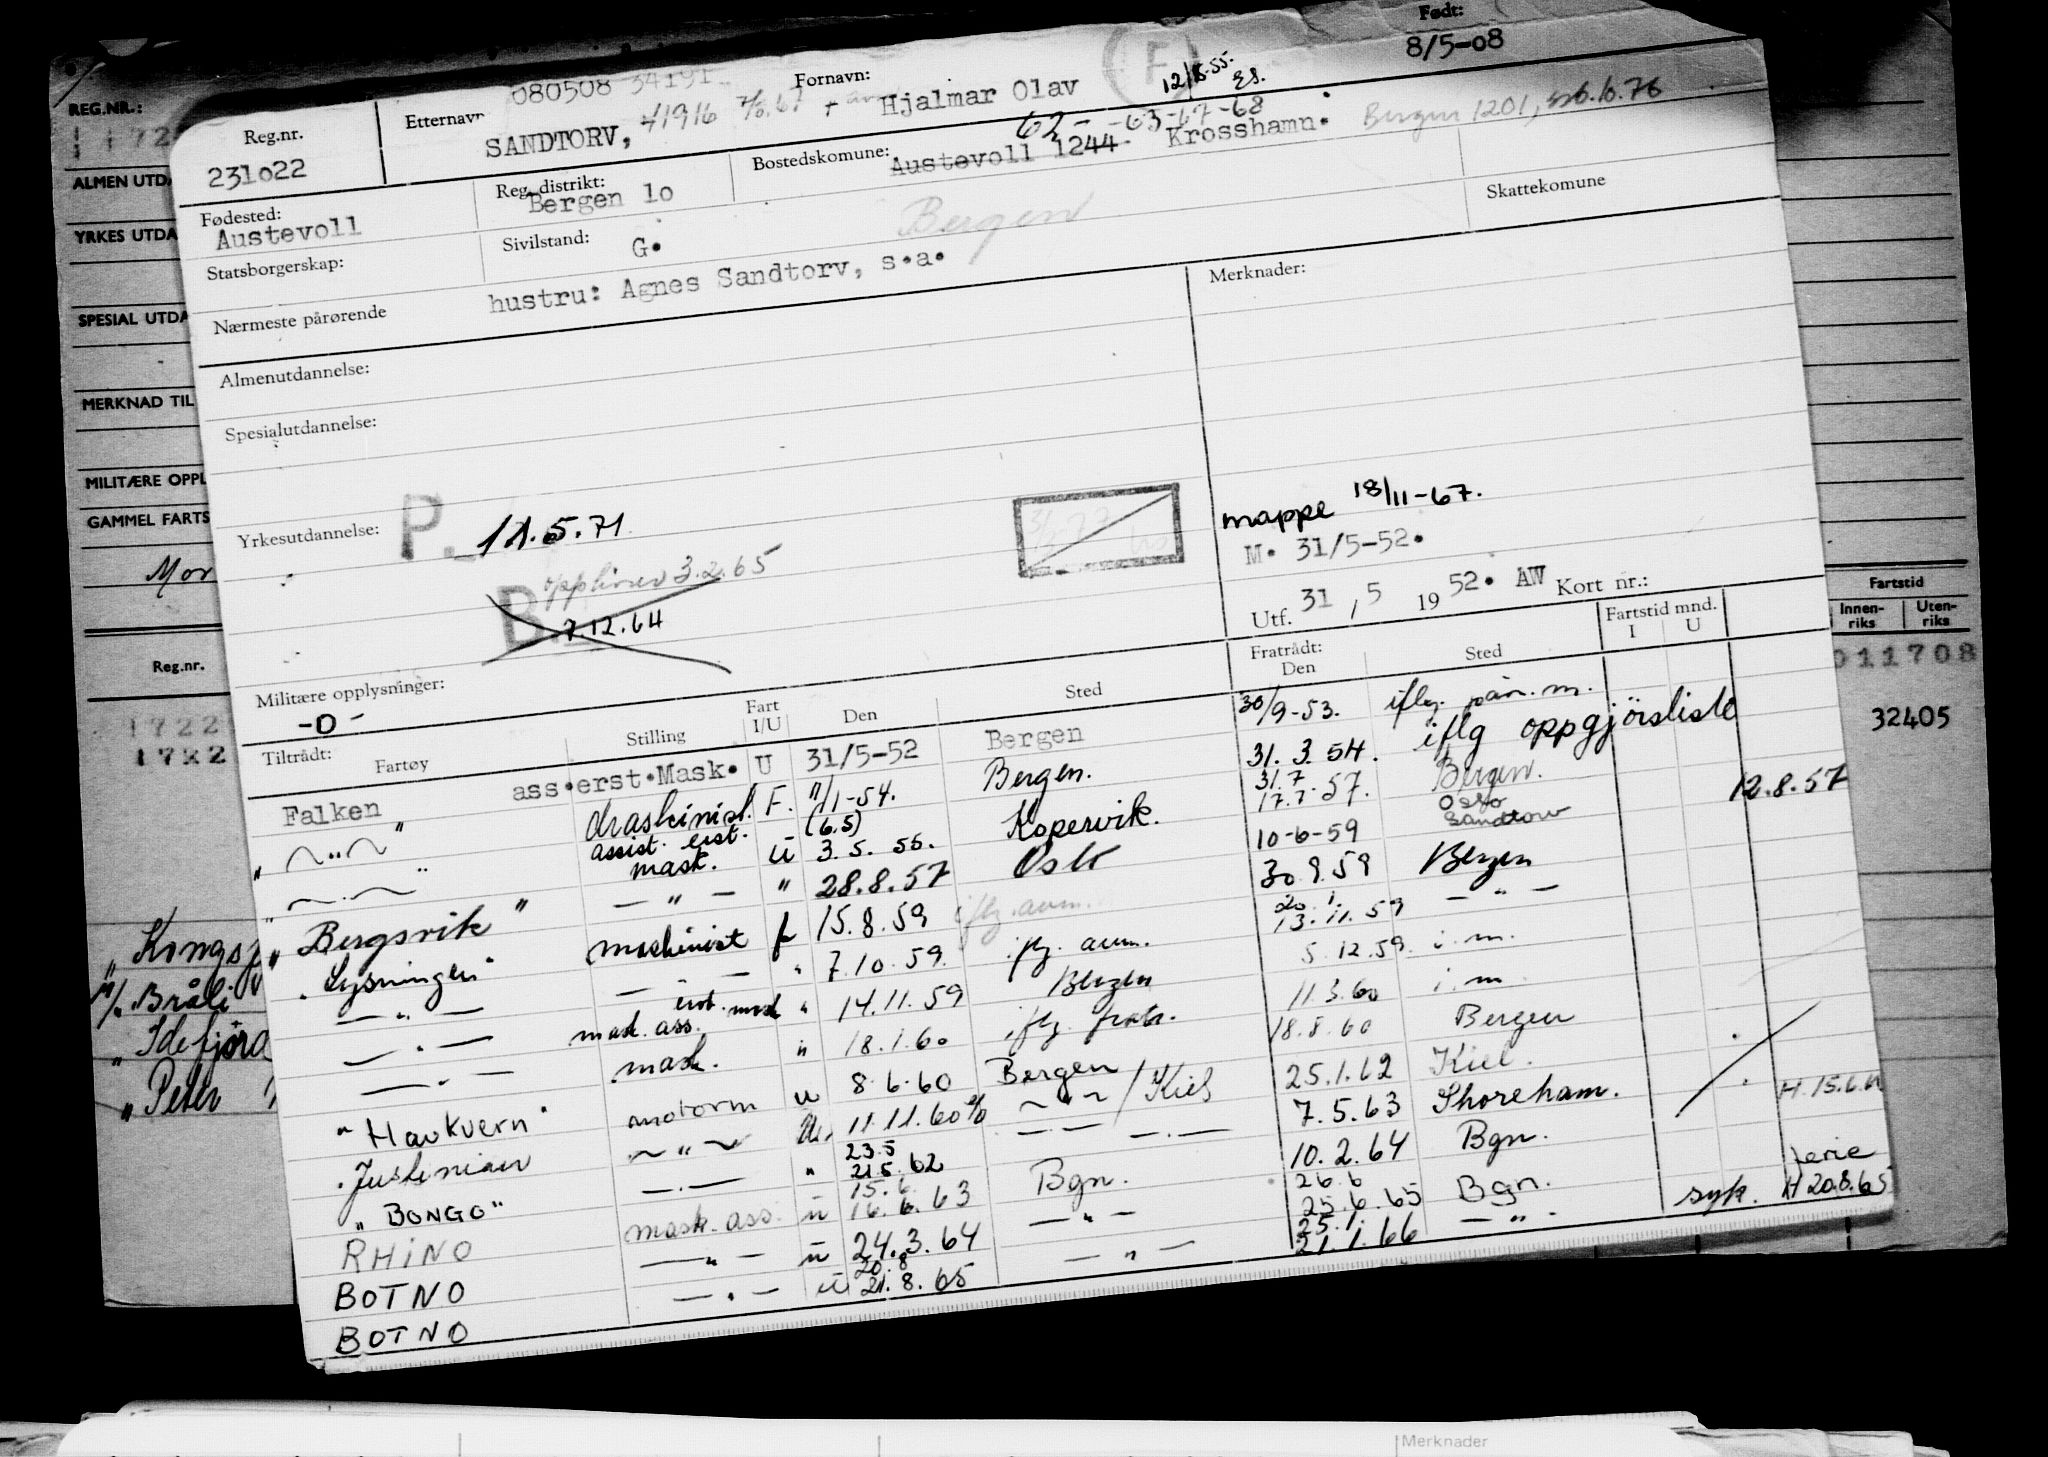 REG.NR.:
ALMEN UTDA
YRKES UTDA
SPESIAL UTDA
MERKNAD TIL
MILITÆRE OPPL
GAMMEL FARTS
Mor
Reg.nr.
1722
17221
"Kongsf
M/. Bråli
"Idefjord
"Peter
Fartstid
Innen-riks Uten-riks
011708
32405
Reg.nr.
231022
Etternavn
080508 34191
SANDTORV, 41916
Fornavn:
Hjalmar Olav
F
12/8-55. Es.
Født:
8/5-08
Fødested:
Austevoll
Reg. distrikt:
Bergen 10
Bostedskomune:
62- -63-67-68
Austevoll 1244. Krosshamn.
Bergen 1201,
Bergen
Skattekomune
Statsborgerskap:
Sivilstand:
G.
Nærmeste pårørende
hustru: Agnes Sandtorv, s.a.
Merknader:
Almenutdannelse:
Spesialutdannelse:
Yrkesutdannelse:
P. 11.5.71
opphever 3.2.65
B. 7.12.64
mappe 18/11-67.
M. 31/5-52.
Utf. 31, 5 1952. AW Kort nr.:
Militære opplysninger:
-0-
Tiltrådt:
Fartøy
Stilling
Fart I/U
Den
Sted
Fratrådt:
Den
Sted
Fartstid mnd.
I U
Falken ass.erst.Mask. U 31/5-52 Bergen 30/9-53. iflg. pån.m.
" ~"~ " maskinist. F. 11/1-54. Bergen. 31.3.54. iflg oppgjörsliste
" ~.~ " assist. erst. mask. U (6.5) 3.5.55. Kopervik. 31.7 17.7.57. Bergen. 12.8.57
— " — " 28.8.57 Oslo 10-6-59 Oslo
"Bergsvik" maskinist f 15.8.59 iflg. anm. 30.9.59 Bergen
"Lysningen" — " 7.10.59 iflg. anm. 20.1. 13.11.59 — " —
— " — erst. mask " 14.11.59 Bergen 5.12.59 i.m.
— " — mask. ass. " 18.1.60 iflg. fratr. 11.3.60 i.m.
— " — mask.
"Havkvern" motorm u 8.6.60 Bergen 18.8.60 Bergen
"Justinian ~"~ 11.11.60 ~"~ / Kiel 25.1.62 Kiel.
"BONGO" — . — " 23.5 21.5.62 — . — 7.5.63 Shoreham. H. 15.6.
RHINO mask. ass. u 15.6. 16.6.63 Bgn. 10.2.64 Bgn.
BOTNO — " — u 24.3.64 — " — 26.6 25.6.65 Bgn. syk. ferie H 20.8.65
BOTNO — . — u 20.8 21.8.65 — " — 25.1. 21.1.66 — " —
Merknader